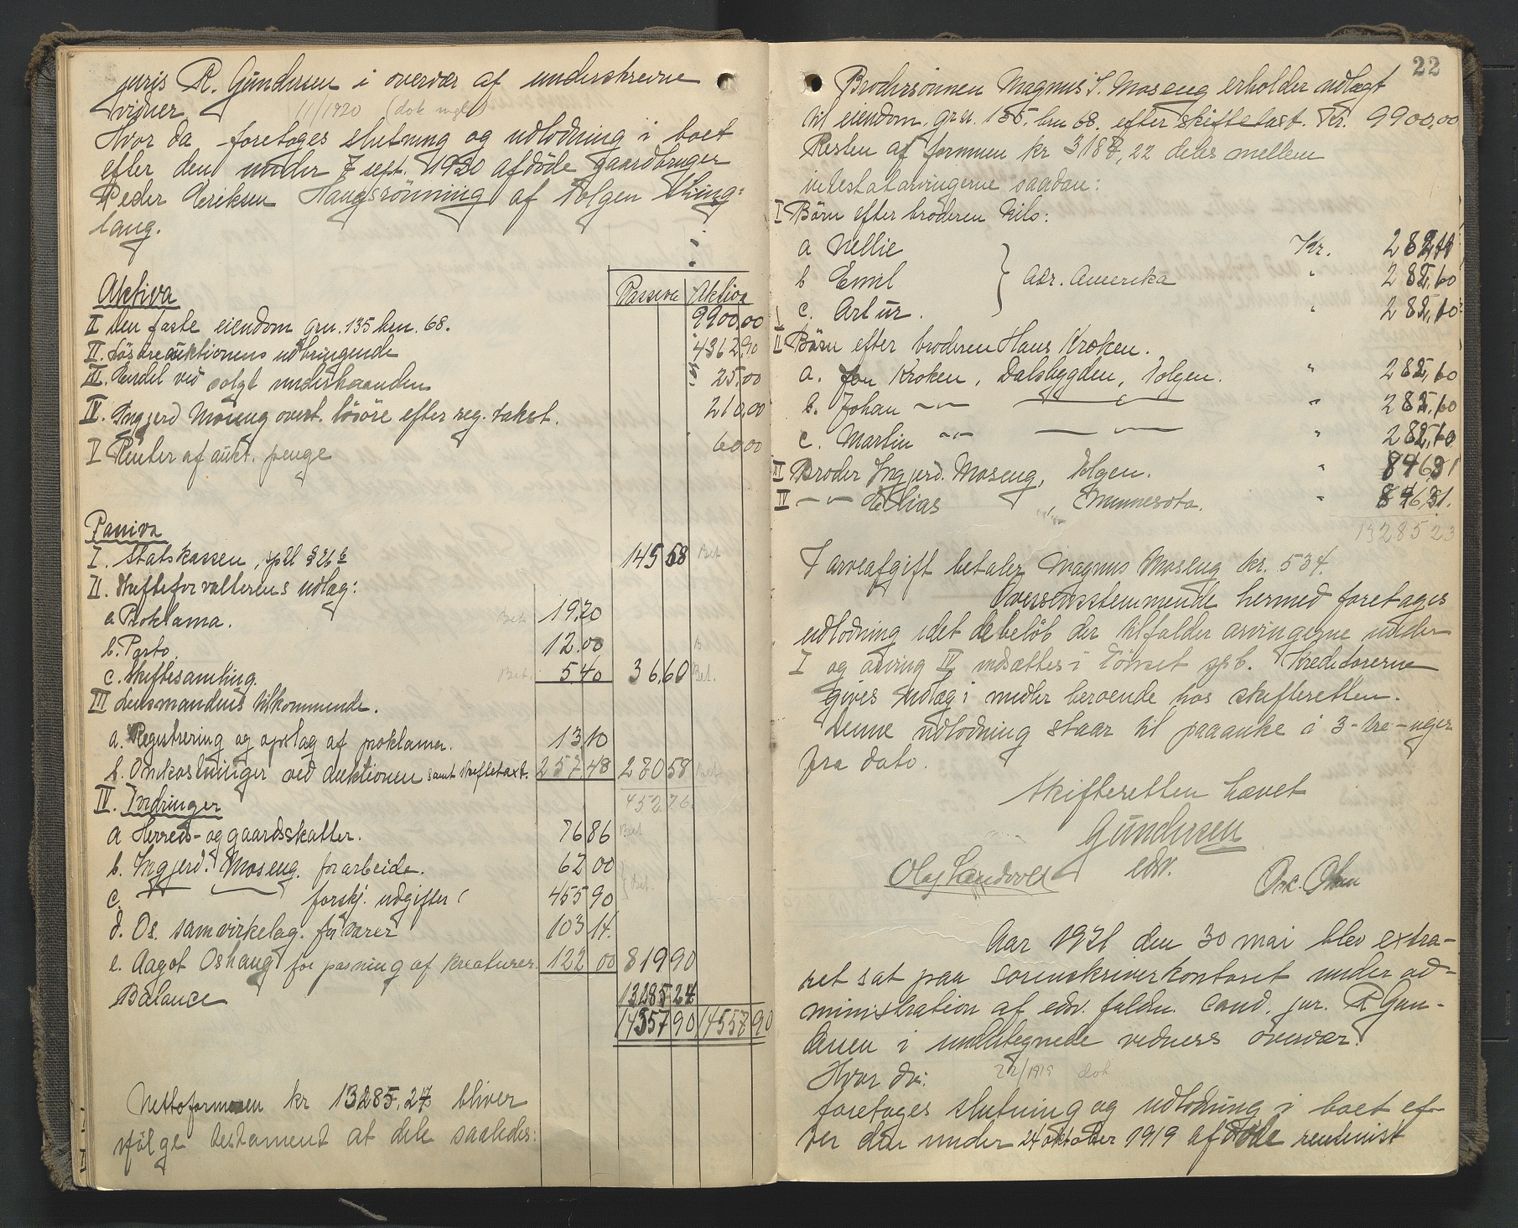 juris R. Gundersen i overvær af underskrevne
vidner
11/1920 (dok
Hvor da foretoges slutning og udlodning i boet
efter den under 7 sept. 1920 afdøde gaardbruger
Peder Eriksen Haugsrønning af Tolgen
Aktiva
Passiva Aktiva
I den faste eiendom gnr. 135 bnr. 68. 9900,00
II. Løsøreauktionens udbringende 4362,90
III. Endel ved solgt underhaanden 25,00
IV. Ingjerd Moseng overt. løsøre efter reg. takst. 210,00
V Renter af aukt. penge 60,00
Passiva
I. Statskassen, spl § 26 145 58 Bet
II. Skifteforvalterens udlæg:
a Proklama. Bet. 19.20
b. Porto. 12.00
c. Skiftesamling. Bet. 5.40 36.60 Bet.
III Lensmandens tilkommende.
a. Registrering og opslag af proklama. 13 10
b. Omkostninger ved auktionen samt skiftetaxt. 257 48 270 58 Bet
452 76
IV. Fordringer
a Herreds- og gaardsskatter. 76 86 Bet
b. Ingjerd. Moseng. for arbeide. 62 00
c. forskj. udgifter 455 90 Bet.
d. Os. samvirkelag. for varer 103 14.
e. Aagot Oshaug for pasning af kreaturer. 122 00 819 90
Balance 13285 24
14557 90 14557 90
Nettoformuen kr 13285,24 bliver
ifølge testament at dele saaledes:
22
Brodersønnen Magnus I. Moseng erholder udlagt
til eiendom gnr. 135. bnr 68. efter skiftetast. Kr. 9900,00
Resten af formuen kr 3385,22 deles mellem
intestatarvingerne saadan:
I Børn efter broderen Nils:
a Nellie Kr. 282,10
b Emil } Adr. Amerika " 282,10
c. Artur. " 282,10
II Børn efter broderen Hans Kroken.
a. Jon Kroken, Dalsbygden, Tolgen. " 282,10
b. Johan -"- " 282,10
c. Martin -"- " 282,10
III Broder Ingjerd. Moseng, Tolgen. " 846,31
IV -"- Elias , Minnesota. " 846,31.
13285 23
I arveafgift betaler Magnus Moseng kr. 534.
Overensstemmende hermed foretages
udlodning idet de beløb der tilfalder arvingerne under
I og arving IV indsættes i Tolnet spb. Kreditorerne
gives udlæg i midler beroende hos skifteretten.
Denne udlodning staar til paaanke i 3-tre-uger
fra dato.
Skifteretten hævet
Gundersen
edv.
Olaf Sandvold Osk. Olsen
Aar 1921 den 30 mai blev extra-
ret sat paa sorenskriverkontoret under ad-
ministration af edv. fuldm. cand. jur. R Gun-
dersen i undertegnede vidners overvær.
Hvor da: 22/1919 dok
foretoges slutning og udlodning i boet ef-
ter den under 24 oktober 1919 afdøde rentenist